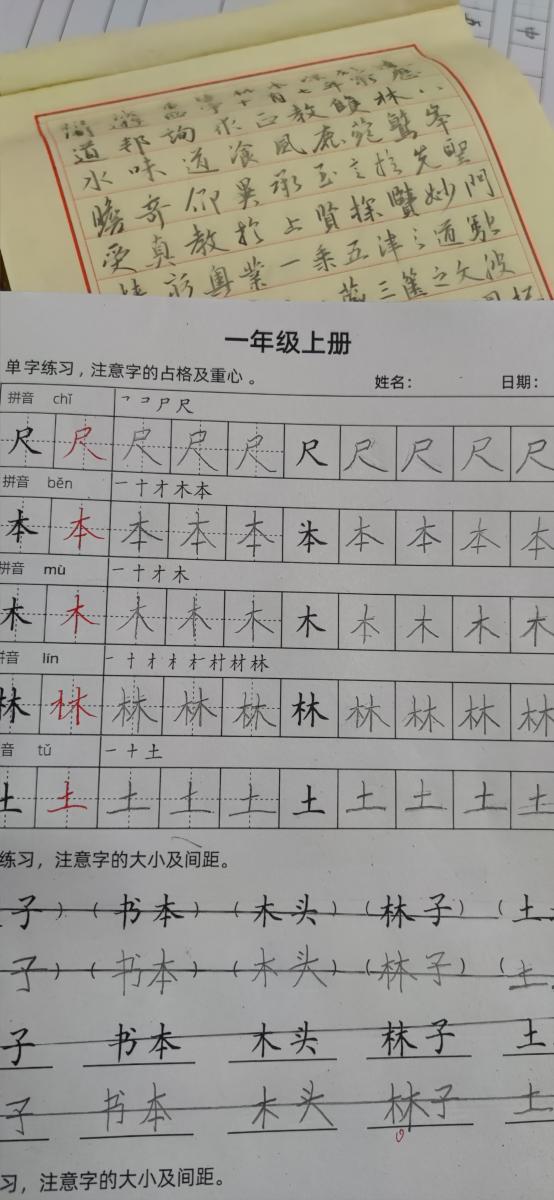 遊西宇十有七年窮歷
道邦詢求正教雙林八
水味道飡風鹿菀鷲峯
瞻奇仰異承至言於先聖
受真教於上賢探賾妙門
精窮奧業一乘五律之道馳
藏三篋之文波
一年级上册
单字练习，注意字的占格及重心。 姓名： 日期：
拼音 chǐ 尸 尺
尺 尺 尺 尺 尺 尺 尺 尺 尺 尺
拼音 běn 一 十 才 木 本
本 本 本 本 本 本 本 本 本 本
拼音 mù 一 十 才 木
木 木 木 木 木 木 木 木 木 木
拼音 lín 一 十 才 木 村 材 林
林 林 林 林 林 林 林 林 林 林
音 tǔ 一 十 土
土 土 土 土 土 土 土 土 土 土
练习，注意字的大小及间距。
子）（书本）（木头）（林子）（土
子）（书本）（木头）（林子）（土
子 书本 木头 林子 土
子 书本 木头 林子 土
习，注意字的大小及间距。